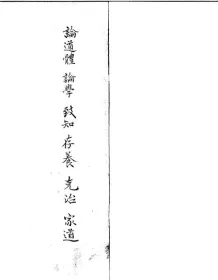 論道體 論學 致知 存養 克治 家道